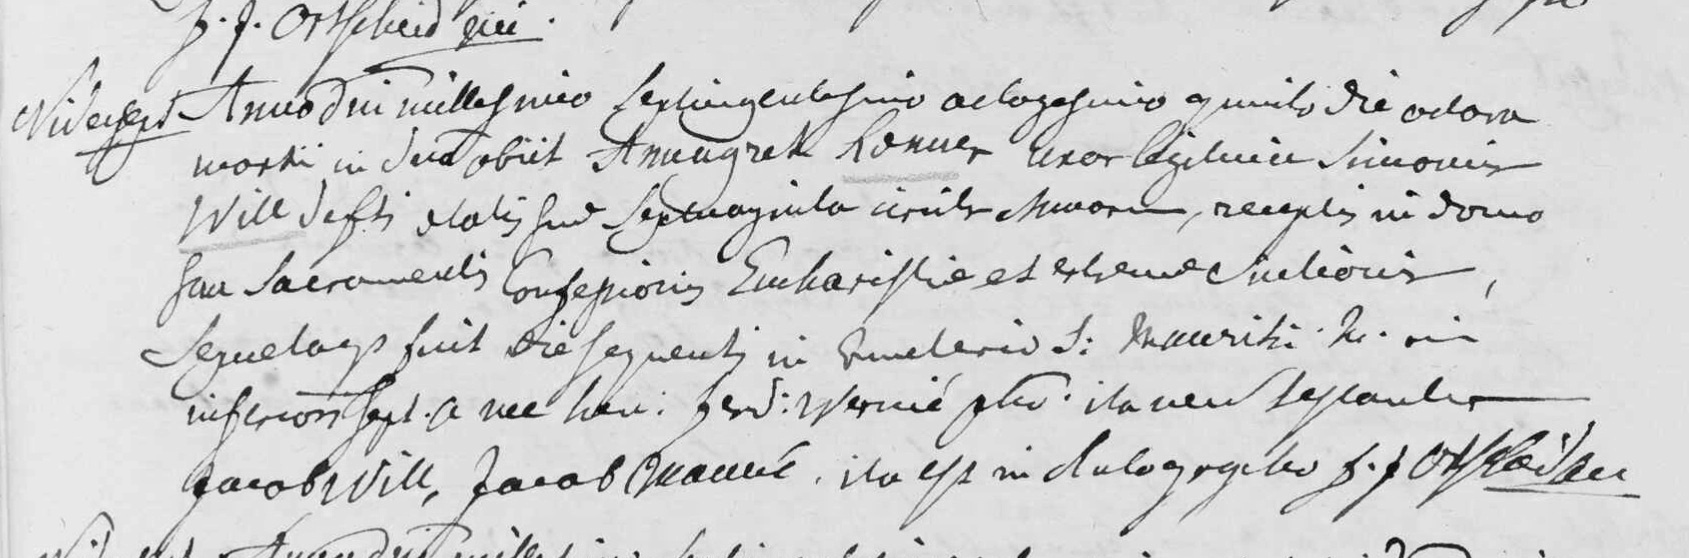 F. J. Ortscheid
Anno dni millesimo septingentesimo octogesimo quinto die octava
martii in obiit Annagreth Renner uxor legitima Simonis
Will defti etatis sue septuaginta circiter Annorum, receptis in domo
sua Sacramentis Confessionis Eucharistie et extreme Unctionis,
Sepultaqs fuit die sequenti in Cemeterio S: Mauritii in
inferiori sept. a me hen: ferd: ita uem testantur
Jacob Will, Jacob Mauué. ita est in autographo F. J. Ortscheid
Anno dni